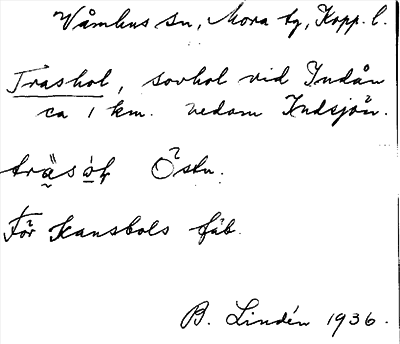 Våmhus sn, Mora tg, Kopp. l.
Trashol, sovhol vid Indån
ca 1 km. nedom Indsjön.
Östn.
För Kansbols fäb.
B. Lindén 1936.